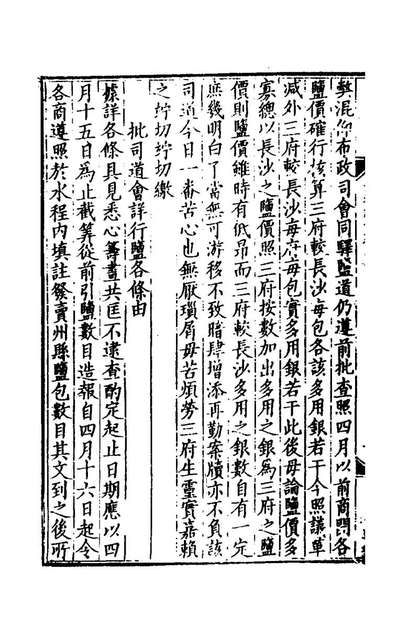 弊混仰布政司會同驛鹽道仍遵前批查照四月以前商開各
鹽價確行核算三府較長沙每包各該多用銀若干今照議革
減外三府較長沙每府每包實多用銀若干此後毋論鹽價多
寡總以長沙之鹽價照三府按數加出多用之銀為三府之鹽
價則鹽價雖時有低昂而三府較長沙多用之銀數自有一定
庶幾明白了當無可游移不致賠肆增添再勤案牘亦不負該
司道今日一番苦心也無厭瑣屑毋苦煩勞三府生靈實嘉賴
之竚切竚切繳
批司道會詳行鹽各條由
據詳各條具見悉心籌畫共匡不逮查酌定起止日期應以四
月十五日為止截筭從前引鹽數目造報自四月十六日起令
各商遵照於水程內填註發賣州縣鹽包數目其文到之後所